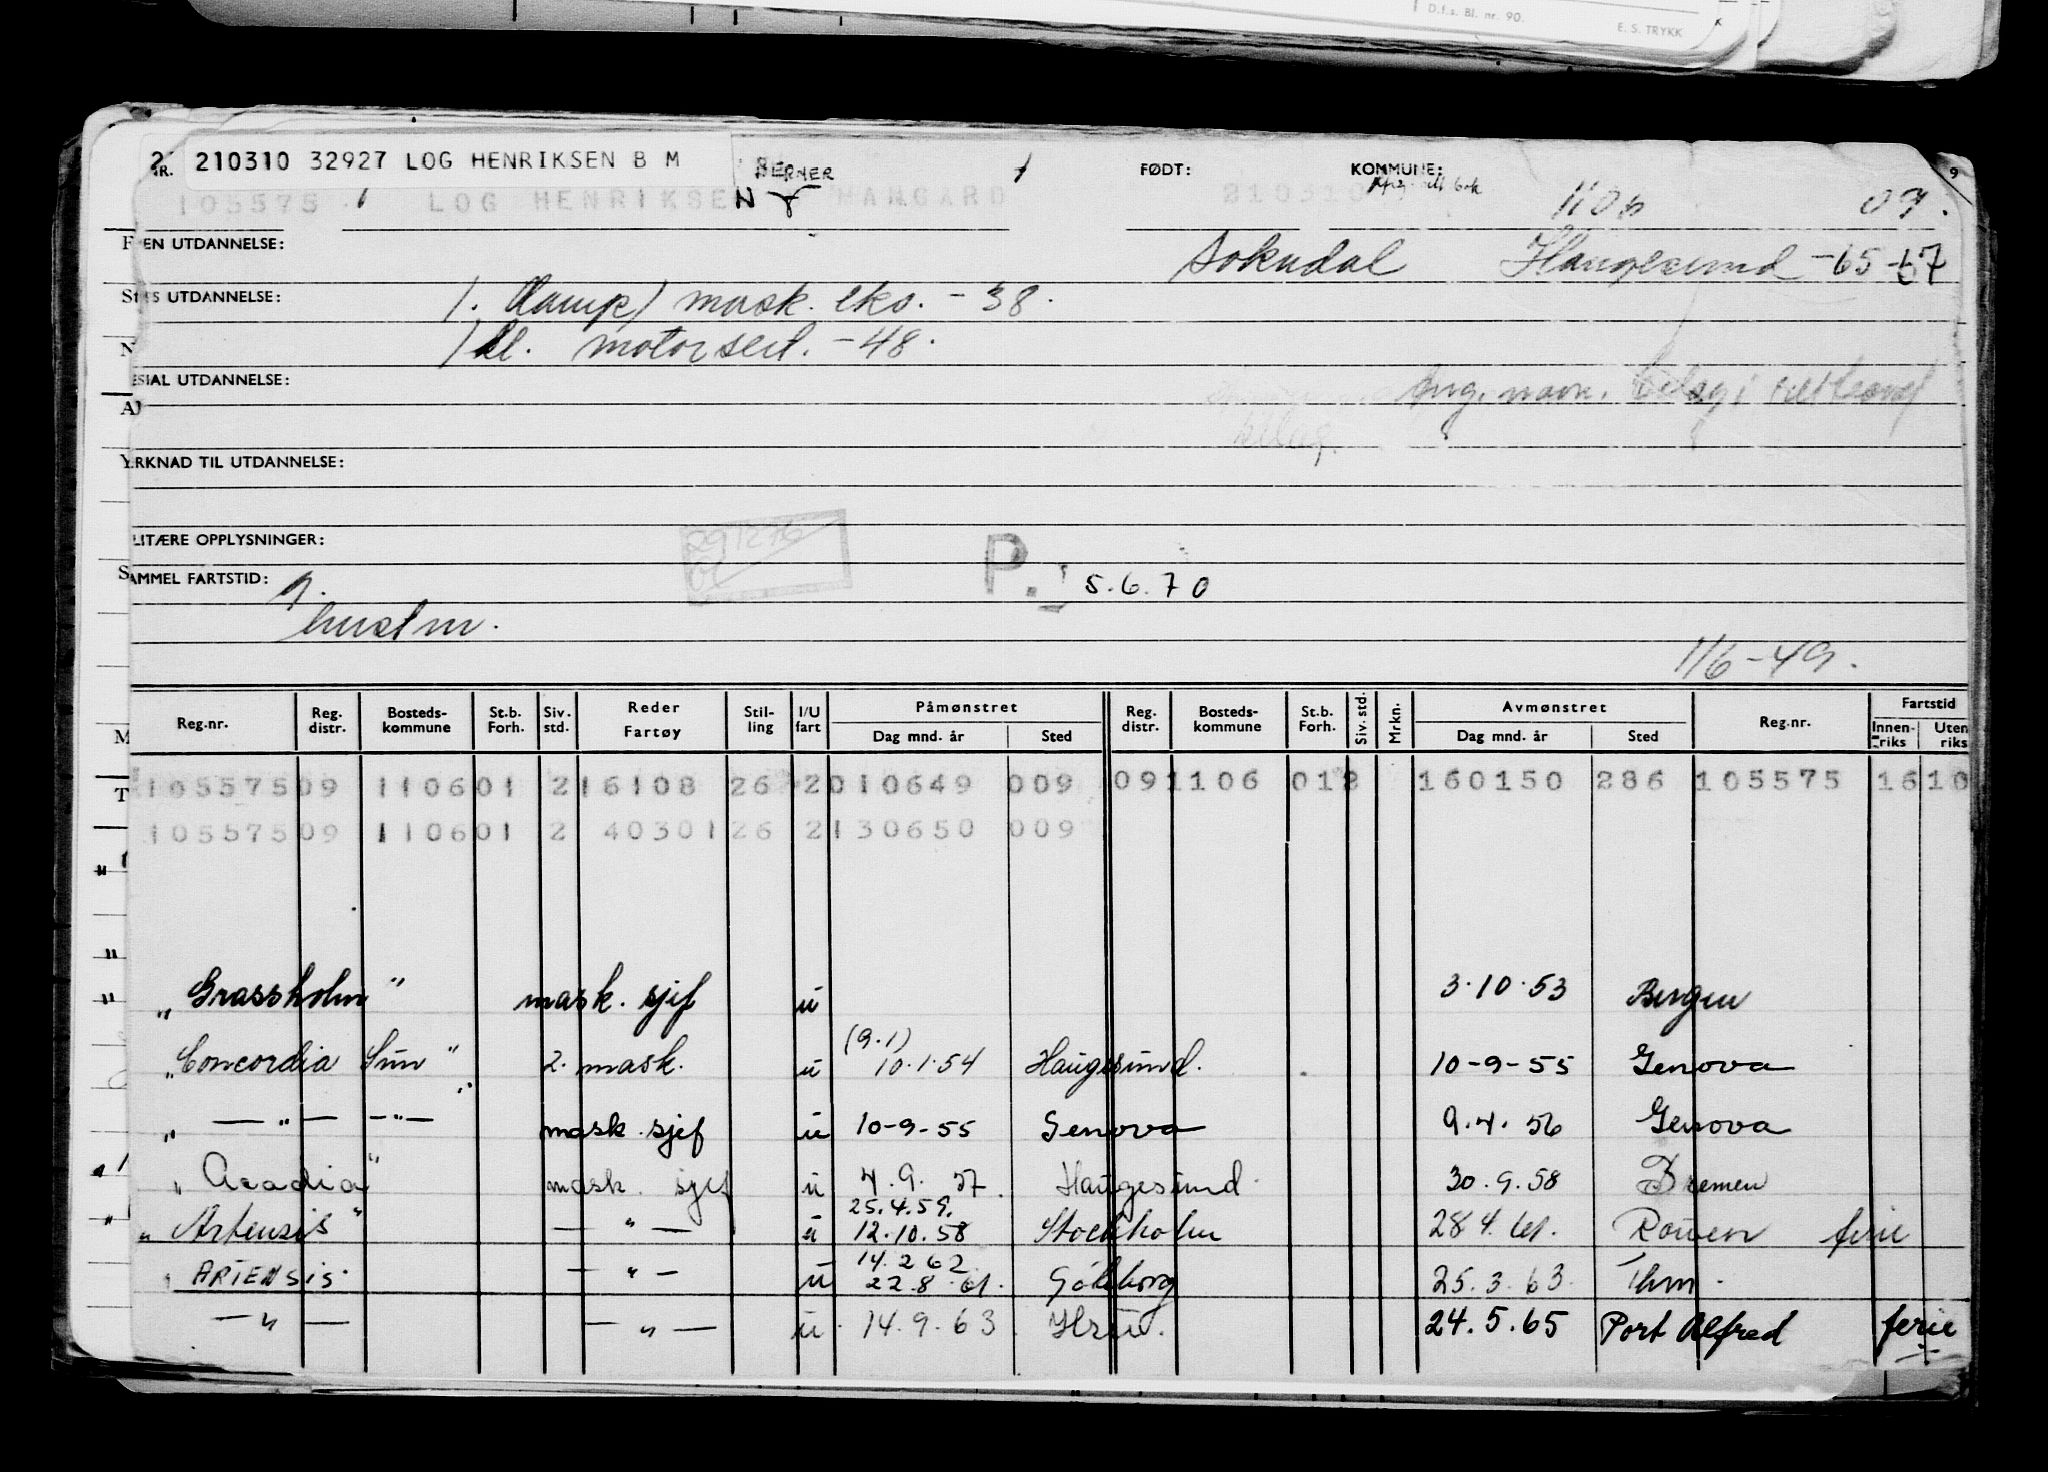 D.f.s. Bl. nr. 90.
E. S. TRYKK
210310 32927 LOG HENRIKSEN B M
BERNER
FØDT:
KOMMUNE:
105575 LOG HENRIKSEN N MANGARD 210310 1106 09.
EN UTDANNELSE:
Sokndal Haugesund -65-67
UTDANNELSE:
1. (damp) mask. eks. -38.
1 kl. motorsert. -48.
SIAL UTDANNELSE:
ang. navn.
RKNAD TIL UTDANNELSE:
LITÆRE OPPLYSNINGER:
AMMEL FARTSTID:
P. 5.6.70
g.
hustru.
1/6-49.
Reg.nr. Reg. distr. Bosteds-kommune St.b. Forh. Siv. std. Reder Fartøy Stil-ling I/U fart Påmønstret Dag mnd. år Sted Reg. distr. Bosteds-kommune St.b. Forh. Siv. std. Mrkn. Avmønstret Dag mnd. år Sted Reg.nr. Fartstid Innen-riks Uten riks
105575 09 1106 01 2 16108 26 2 010649 009 09 1106 01 2 160150 286 105575 16 10
105575 09 1106 01 2 40301 26 2 130650 009
"Grassholm" mask. sjef u 3.10.53 Bergen
(9.1)
"Concordia Sun" 2. mask. u 10.1.54 Haugesund. 10-9-55 Genova
" — " — — " — mask. sjef u 10-9-55 Genova 9.4.56 Genova
"Acadia" mask. sjef u 4.9.57. Haugesund 30.9.58 Bremen
25.4.59.
"Artensis" — " — u 12.10.58 Stockholm 28 4. 61. Rouen ferie
14.2 62
"ARTENSIS" — " — u 22.8.61. Göteborg 25.3.63. Thm.
— " — — " — u. 14.9.63 24.5.65 Port Alfred ferie